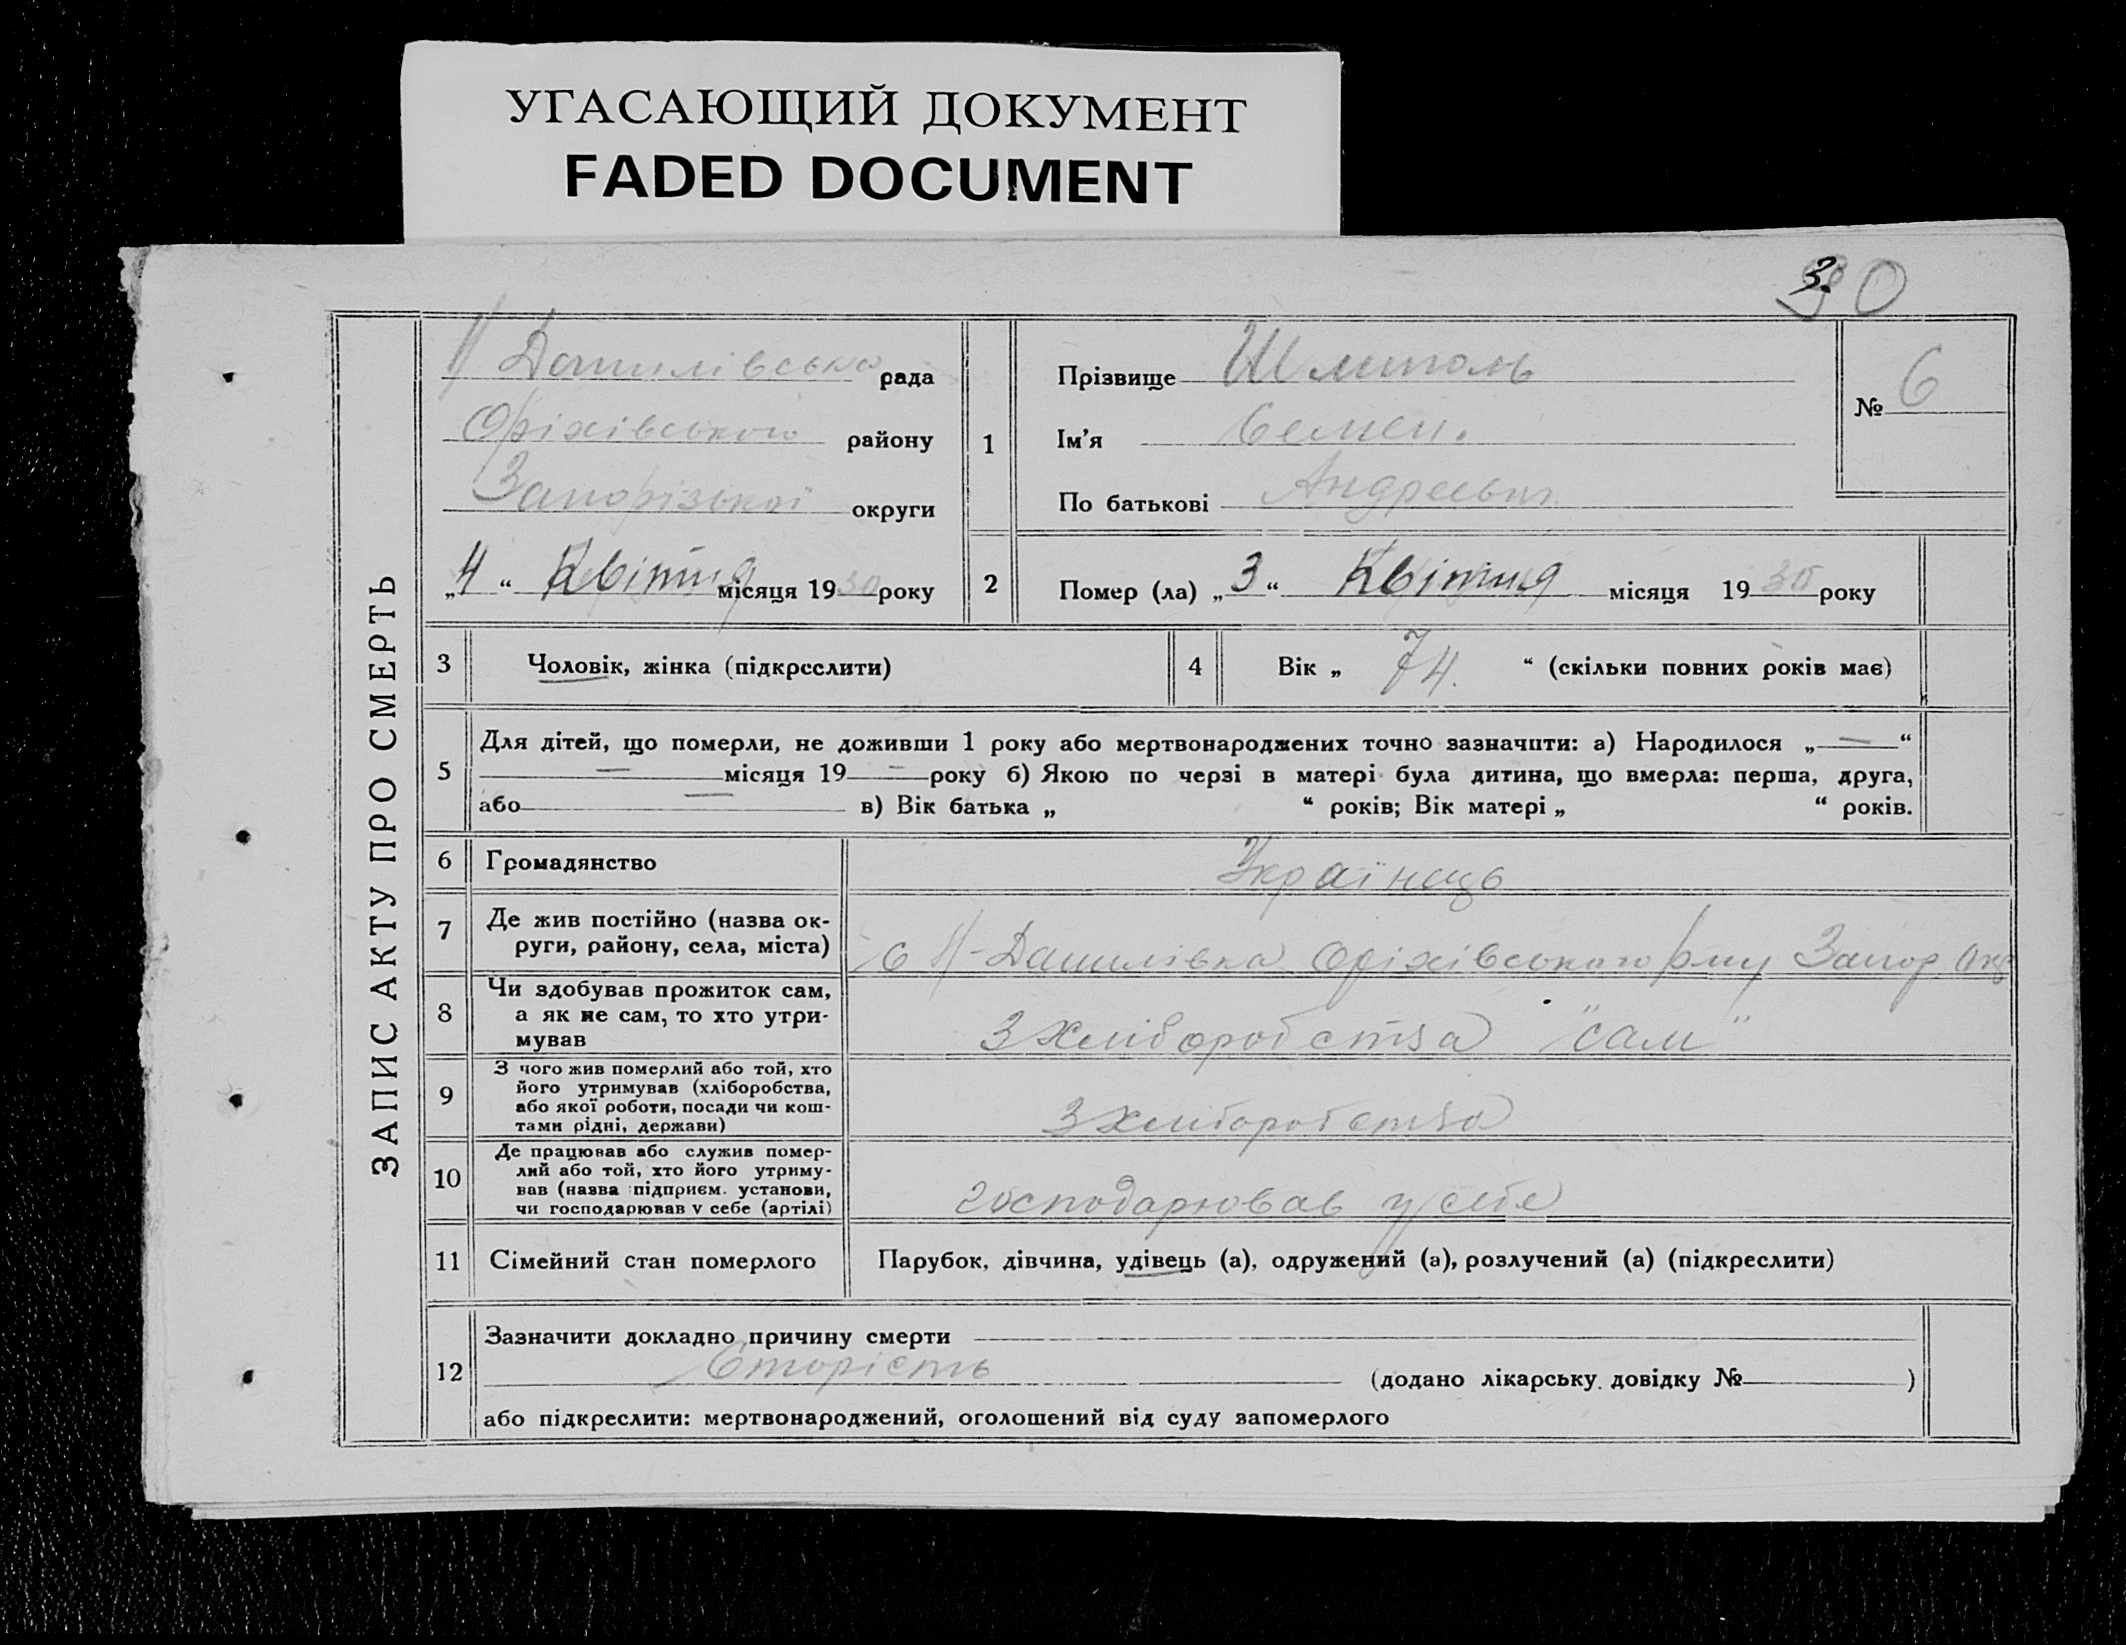 УГАСАЮЩИЙ ДОКУМЕНТ
FADED DOCUMENT
30
ЗАПИС АКТУ ПРО СМЕРТЬ
Н Данилівська рада
Оріхівського району
Запорізької округи
„4“ Квітня місяця 1930 року
1
Прізвище
Ім'я Семен.
По батькові Андреевич
№ 6
2
Помер (ла) „3“ Квітня місяця 1930 року
3 Чоловік, жінка (підкреслити)
4 Вік „ 74. “ (скільки повних років має)
5
Для дітей, що померли, не доживши 1 року або мертвонароджених точно зазначити: а) Народилося „—“
— місяця 19 — року б) Якою по черзі в матері була дитина, що вмерла: перша, друга,
або — в) Вік батька „ “ років; Вік матері „ “ років.
6 Громадянство Українець
7 Де жив постійно (назва ок-
руги, району, села, міста)
с Н-Данилівка Оріхівського р-ну Запор Окр
8 Чи здобував прожиток сам,
а як не сам, то хто утри-
мував
З хліборобства "сам"
9 З чого жив померлий або той, хто
його утримував (хліборобства,
або якої роботи, посади чи кош-
тами рідні, держави)
З хліборобства
10 Де працював або служив помер-
лий або той, хто його утриму-
вав (назва підприєм. установи,
чи господарював у себе (артілі)
господарював у себе
11 Сімейний стан померлого Парубок, дівчина, удівець (а), одружений (а), розлучений (а) (підкреслити)
12
Зазначити докладно причину смерти
Старість (додано лікарську довідку № )
або підкреслити: мертвонароджений, оголошений від суду запомерлого